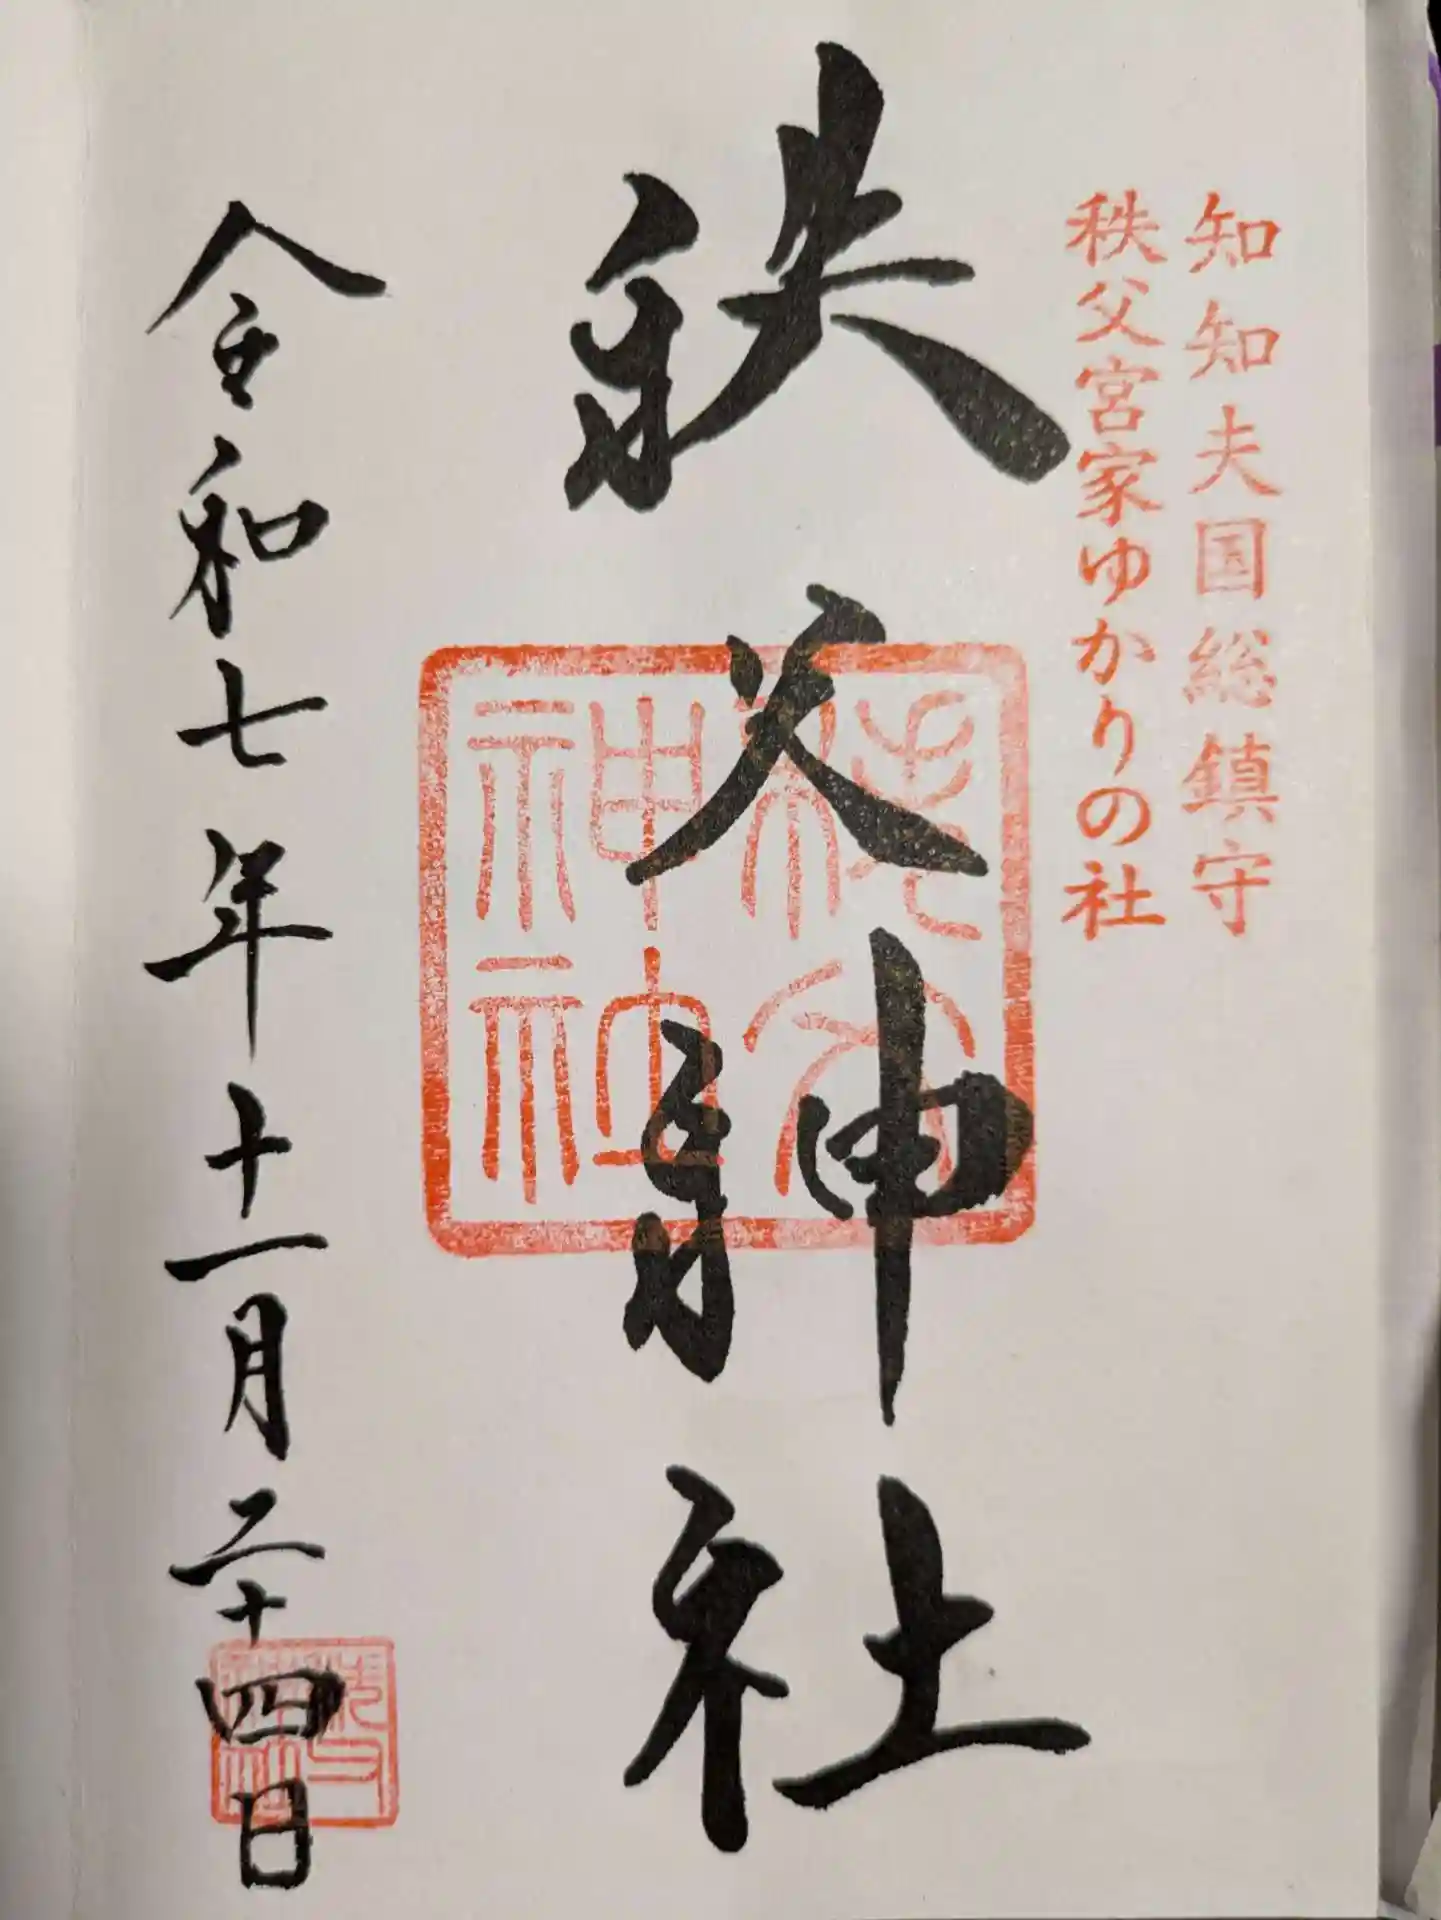 知知夫国総鎮守
秩父宮家ゆかりの社
秩父神社
秩父
神社
令和七年十一月二十四日
秩父
神社